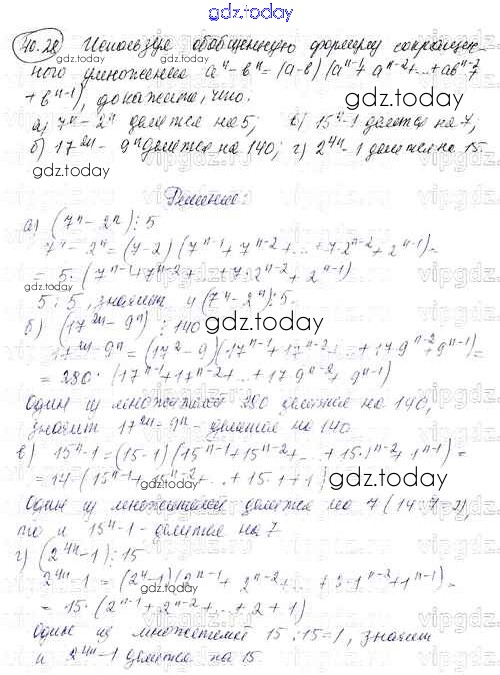 gdz.today
40.28 Используя обобщенную формулу сокращен-
ного умножения aⁿ-bⁿ=(a-b)(aⁿ⁻¹+aⁿ⁻²+...+abⁿ⁻²+
+bⁿ⁻¹), докажите, что:
gdz.today
а) 7ⁿ-2ⁿ делится на 5; в) 15ⁿ-1 делится на 7;
б) 17²ⁿ-9ⁿ делится на 140; г) 2⁴ⁿ-1 делится на 15
gdz.today
Решение:
а) (7ⁿ-2ⁿ):5
7ⁿ-2ⁿ=(7-2)(7ⁿ⁻¹+7ⁿ⁻²+...+7·2ⁿ⁻²+2ⁿ⁻¹)=
=5·(7ⁿ⁻¹+7ⁿ⁻²+...+7·2ⁿ⁻²+2ⁿ⁻¹)
gdz.today
5:5, значит и (7ⁿ-2ⁿ):5.
б) (17²ⁿ-9ⁿ):140
gdz.today
17²ⁿ-9ⁿ=(17²-9)(17ⁿ⁻¹+17ⁿ⁻²+...+17·9ⁿ⁻²+9ⁿ⁻¹)=
=280·(17ⁿ⁻¹+17ⁿ⁻²+...+17·9ⁿ⁻²+9ⁿ⁻¹)
Один из множителей 280 делится на 140,
значит 17²ⁿ-9ⁿ-делится на 140
gdz.today
в) 15ⁿ-1=(15-1)(15ⁿ⁻¹+15ⁿ⁻²+...+15·1ⁿ⁻²+1ⁿ⁻¹)=
=14(15ⁿ⁻¹+15ⁿ⁻²+...+15·1+1)
gdz.today
Один из множителей делится на 7 (14:7=2),
то и 15ⁿ-1-делится на 7.
г) (2⁴ⁿ-1):15
gdz.today
2⁴ⁿ-1=(2⁴-1)(2ⁿ⁻¹+2ⁿ⁻²+...+2·1ⁿ⁻²+1ⁿ⁻¹)=
=15(2ⁿ⁻¹+2ⁿ⁻²+...+2+1)
gdz.today
Один из множителей 15:15=1, значит
и 2⁴ⁿ-1 делится на 15.
gdz.today